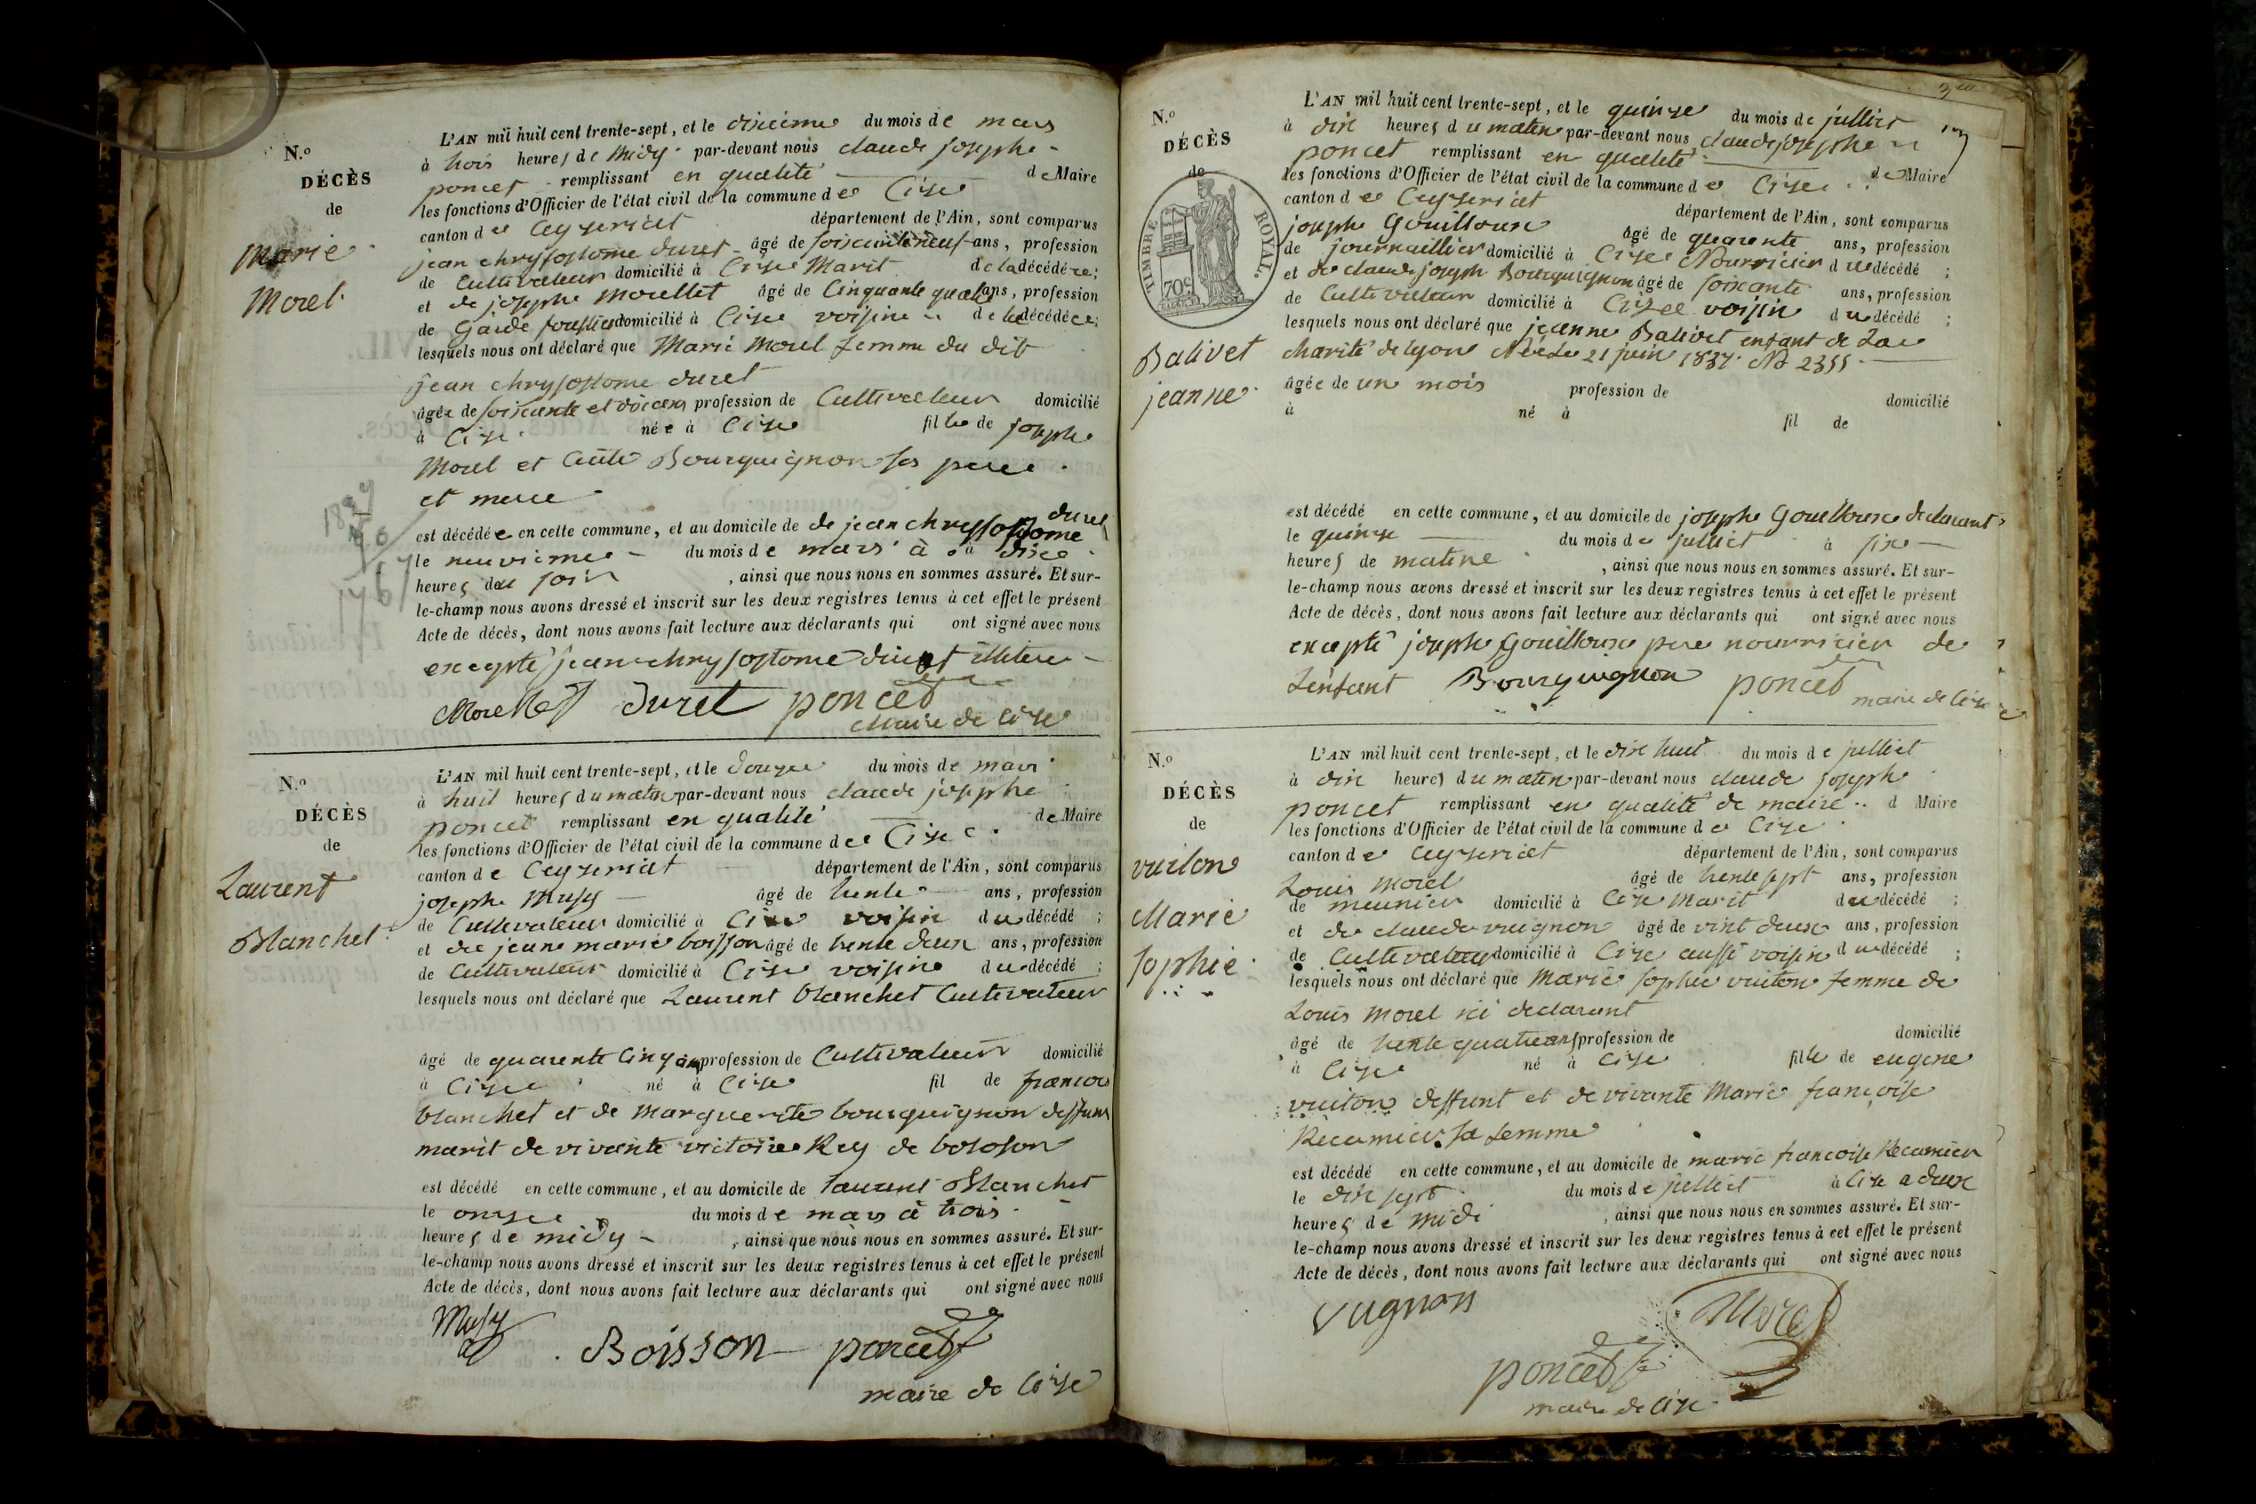 N.º
DÉCÈS
de
Marie
Morel
L'AN mil huit cent trente-sept, et le dixieme du mois de mars
à trois heures de midy par-devant nous claude josephe
poncet remplissant en qualité de Maire
les fonctions d'Officier de l'état civil de la commune de Cize
canton de Ceyzeriat département de l'Ain, sont comparus
jean chrysostome duret âgé de soixante neuf ans, profession
de Cultivateur domicilié à Cize Marit de la décédée;
et de josephe Morellet âgé de Cinquante quatre ans, profession
de Garde forestier domicilié à Cize voisin de la décédée;
lesquels nous ont déclaré que Marie Morel femme du dit
jean chrysostome duret
âgée de soixante et dix ans profession de Cultivateur domicilié
à Cize née à Cize fille de josephe
Morel et Bourguignon ses pere
et mere
est décédée en cette commune, et au domicile de de jean chrysostome duret
le neuvieme du mois de mars à dix
heures du soir, ainsi que nous nous en sommes assuré. Et sur-
le-champ nous avons dressé et inscrit sur les deux registres tenus à cet effet le présent
Acte de décès, dont nous avons fait lecture aux déclarants qui ont signé avec nous
excepté jean chrysostome duret illitere
Morellet duret poncet
Maire de Cize
1837
70
1767
N.º
DÉCÈS
de
Laurent
Blanchet
L'AN mil huit cent trente-sept, et le douze du mois de mars
à huit heures du matin par-devant nous claude josephe
poncet remplissant en qualité de Maire
les fonctions d'Officier de l'état civil de la commune de Cize
canton de Ceyzeriat département de l'Ain, sont comparus
josephe Musy âgé de trente ans, profession
de Cultivateur domicilié à Cize voisin du décédé;
et de jean marie boisson âgé de trente deux ans, profession
de Cultivateur domicilié à Cize voisin du décédé;
lesquels nous ont déclaré que Laurent blanchet Cultivateur
âgé de quarente Cinq ans profession de Cultivateur domicilié
à Cize né à Cize fil de francois
blanchet et de Marguerite bourguignon deffuns
marit de vivante victoire Rey de bolozon
est décédé en cette commune, et au domicile de laurent Blanchet
le onze du mois de mars à trois
heures de midy, ainsi que nous nous en sommes assuré. Et sur-
le-champ nous avons dressé et inscrit sur les deux registres tenus à cet effet le présent
Acte de décès, dont nous avons fait lecture aux déclarants qui ont signé avec nous
Musy Boisson poncet
maire de Cize
N.º
DÉCÈS
de
TIMBRE ROYAL
70c
Balivet
jeanne
L'AN mil huit cent trente-sept, et le quinze du mois de julliet
à dix heures du matin par-devant nous claude josephe
poncet remplissant en qualité de Maire
les fonctions d'Officier de l'état civil de la commune de Cize
canton de Ceyzeriat département de l'Ain, sont comparus
josephe Gouilloux âgé de quarente ans, profession
de journaillier domicilié à Cize Nourricier du décédé;
et de claude joseph Bourguignon âgé de soixante ans, profession
de Cultivateur domicilié à Cize voisin du décédé;
lesquels nous ont déclaré que jeanne Balivet enfant de La
charité de lyon Née Le 21 juin 1837 No 2355
âgée de un mois profession de domicilié
à né à fil de
est décédé en cette commune, et au domicile de josephe Gouilloux declarant
le quinze du mois de julliet à six
heures de matine, ainsi que nous nous en sommes assuré. Et sur-
le-champ nous avons dressé et inscrit sur les deux registres tenus à cet effet le présent
Acte de décès, dont nous avons fait lecture aux déclarants qui ont signé avec nous
excepté josephe Gouilloux pere nourricier de
Lenfant Bourguignon poncet
maire de Cize
N.º
DÉCÈS
de
vuiton
Marie
sophie
L'AN mil huit cent trente-sept, et le dix huit du mois de julliet
à dix heures du matin par-devant nous claude joseph
poncet remplissant en qualité de maire d Maire
les fonctions d'Officier de l'état civil de la commune de Cize
canton de Ceyzeriat département de l'Ain, sont comparus
Louis Morel âgé de trente sept ans, profession
de meunier domicilié à Cize Marit du décédé;
et de claude vugnon âgé de vint deux ans, profession
de Cultivateur domicilié à Cize aussi voisin du décédé;
lesquels nous ont déclaré que Marie sophie vuiton femme de
Louis Morel ici declarant
âgé de trente quatre ans profession de domicilié
à Cize né à Cize fille de eugene
vuiton deffunt et de vivante Marie françoise
Recamier sa femme
est décédé en cette commune, et au domicile de marie francoise Recamier
le dix sept du mois de julliet à Cize a deux
heures de midi, ainsi que nous nous en sommes assuré. Et sur-
le-champ nous avons dressé et inscrit sur les deux registres tenus à cet effet le présent
Acte de décès, dont nous avons fait lecture aux déclarants qui ont signé avec nous
vugnon Morel
poncet
maire de Cize